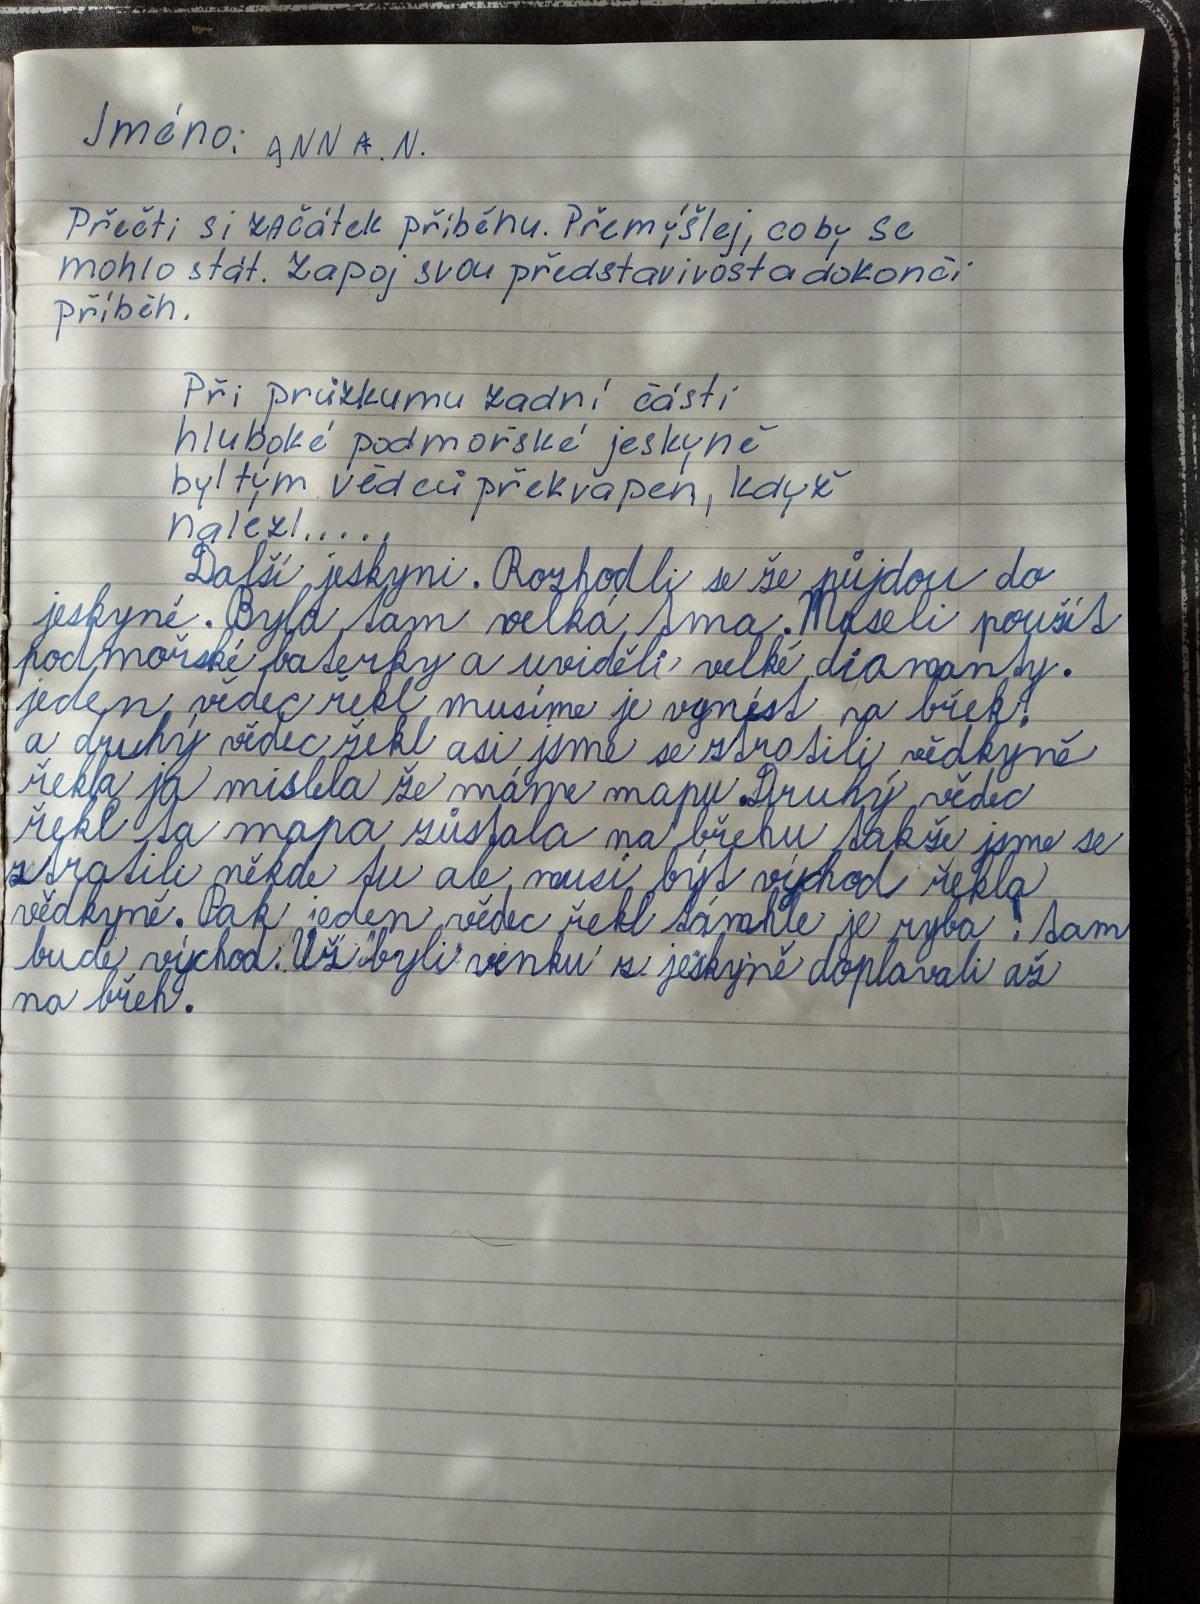 Jméno: ANNA.N.
Přečti si začátek příběhu. Přemýšlej, co by se
mohlo stát. Zapoj svou představivost a dokonči
příběh.
Při průzkumu zadní části
hluboké podmořské jeskyně
byl tým vědců překvapen, když
nalezl.....
Další jeskyni. Rozhodli se že půjdou do
jeskyně. Byla tam velká tma. Museli použít
podmořské baterky a uviděli velké diamanty.
jeden vědec řekl musíme je vynést na břek!
a druhý vědec řekl asi jsme se ztratili vědkyně
řekla já mislela že máme mapu. Druhý vědec
řekl ta mapa zůstala na břehu takže jsme se
ztratili někde tu ale musí být východ řekla
vědkyně. Pak jeden vědec řekl támhle je ryba! tam
bude východ. Už byli venku z jeskyně doplavali až
na břeh.